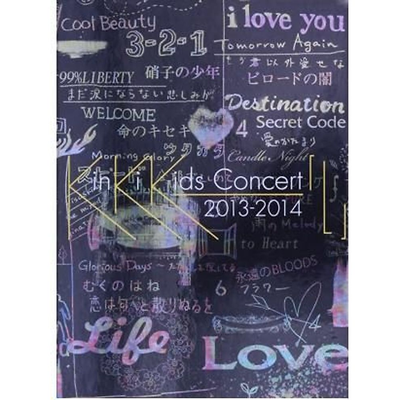 Cool Beauty
i love you
3-2-1
Tomorrow Again
もう君以外愛せない
99%LIBERTY
硝子の少年
ビロードの闇
まだ涙にならない悲しみが
Destination
WELCOME
4
Secret Code
命のキセキ
愛のかたまり
Morning Glory
Candle Night
KinKi Kids Concert
2013-2014
「L」
雨のMelody
to Heart
Glorious Days
むくのはね
永遠のBLOODS
6
フラワー
恋は匂へと散りぬるを
4
Life
Love